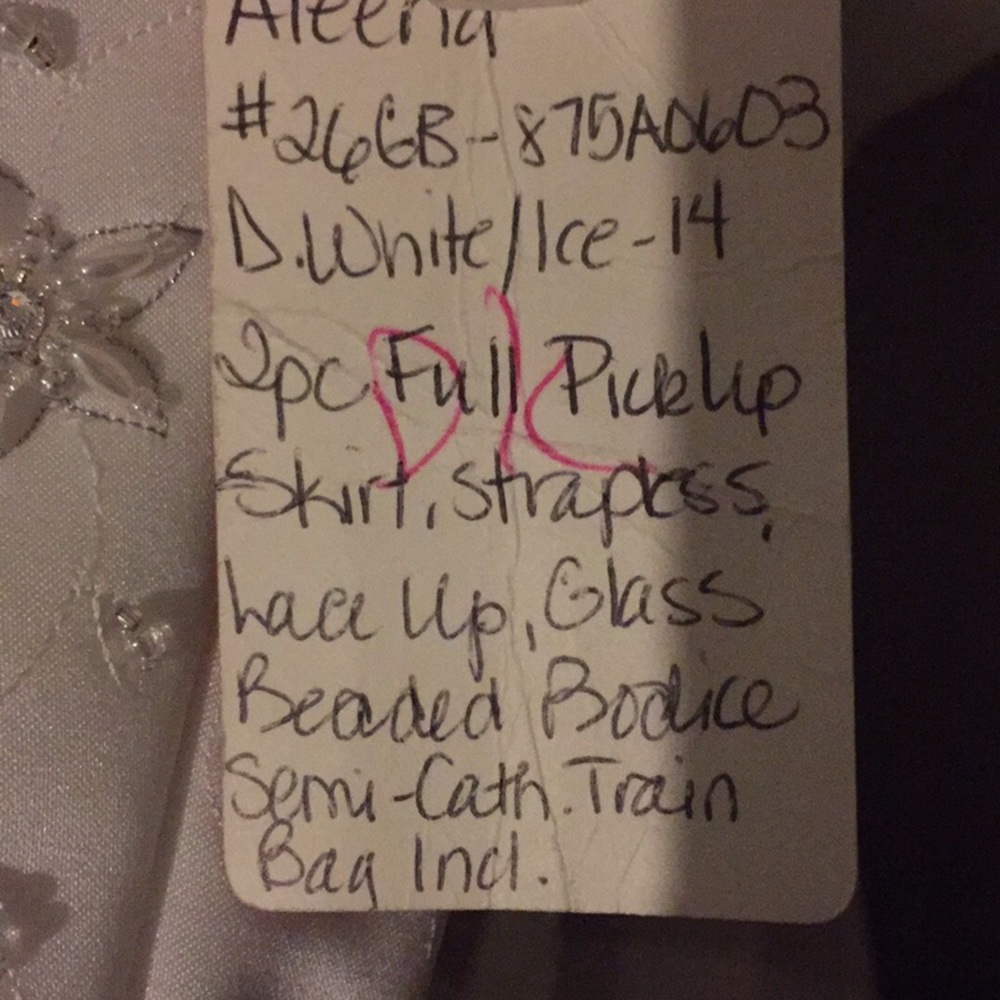 Aleena
#26GB-875A0603
D.White/Ice-14
2pc Full PickUp
Skirt, Strapless,
Lace Up, Glass
Beaded Bodice
Semi-Cath. Train
Bag Incl.